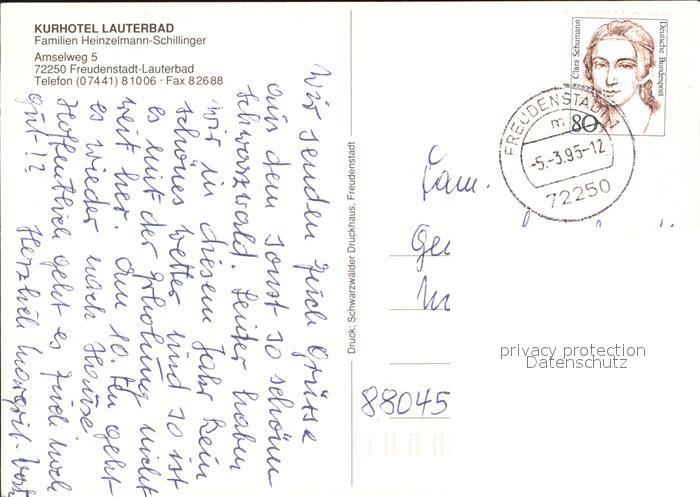 KURHOTEL LAUTERBAD
Familien Heinzelmann-Schillinger
Amselweg 5
72250 Freudenstadt-Lauterbad
Telefon (07441) 81006 · Fax 82688
Wir senden Euch Grüsse
aus dem sonst so schönen
Schwarzwald. Leider haben
wir in diesem Jahr kein
schönes Wetter und so ist
es mit der Erholung nicht
weit her. Am 10. ten geht
es wieder nach Hause
Hoffentlich geht es Euch noch
gut!?
Herzlich Margrit
Druck: Schwarzwälder Druckhaus, Freudenstadt
Clara Schumann
Deutsche Bundespost
80
FREUDENSTADT
m
-5.-3.95-12
72250
Fam.
88045
privacy protection
Datenschutz